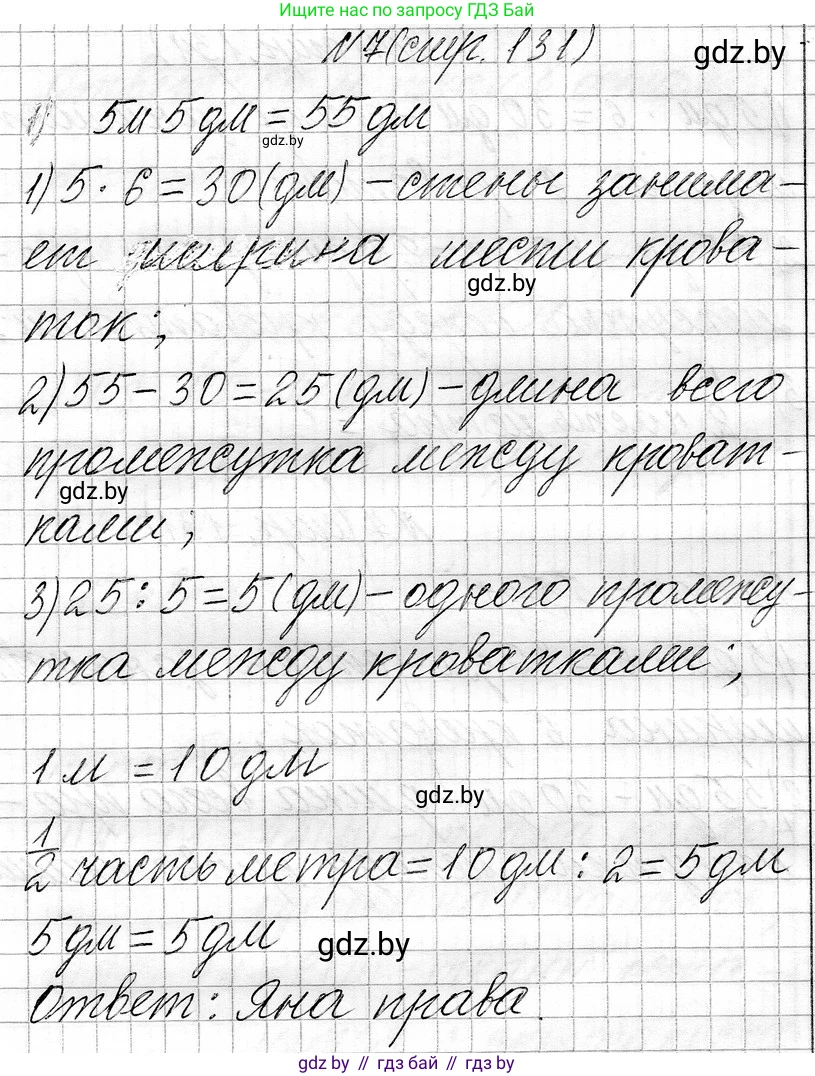 Ищите нас по запросу ГДЗ Бай
№7(стр. 131)
gdz.by
1) 5м 5дм = 55дм
gdz.by
1) 5 · 6 = 30(дм) – стены занима–
ет ширина шести крова–
gdz.by
ток;
2) 55 – 30 = 25(дм) – длина всего
промежутка между кроват–
gdz.by
ками;
3) 25 : 5 = 5(дм) – одного промежу–
тка между кроватками;
1м = 10дм
gdz.by
1/2 часть метра = 10дм : 2 = 5дм
5дм = 5дм
gdz.by
Ответ: Яна права.
gdz.by // гдз бай // gdz.by